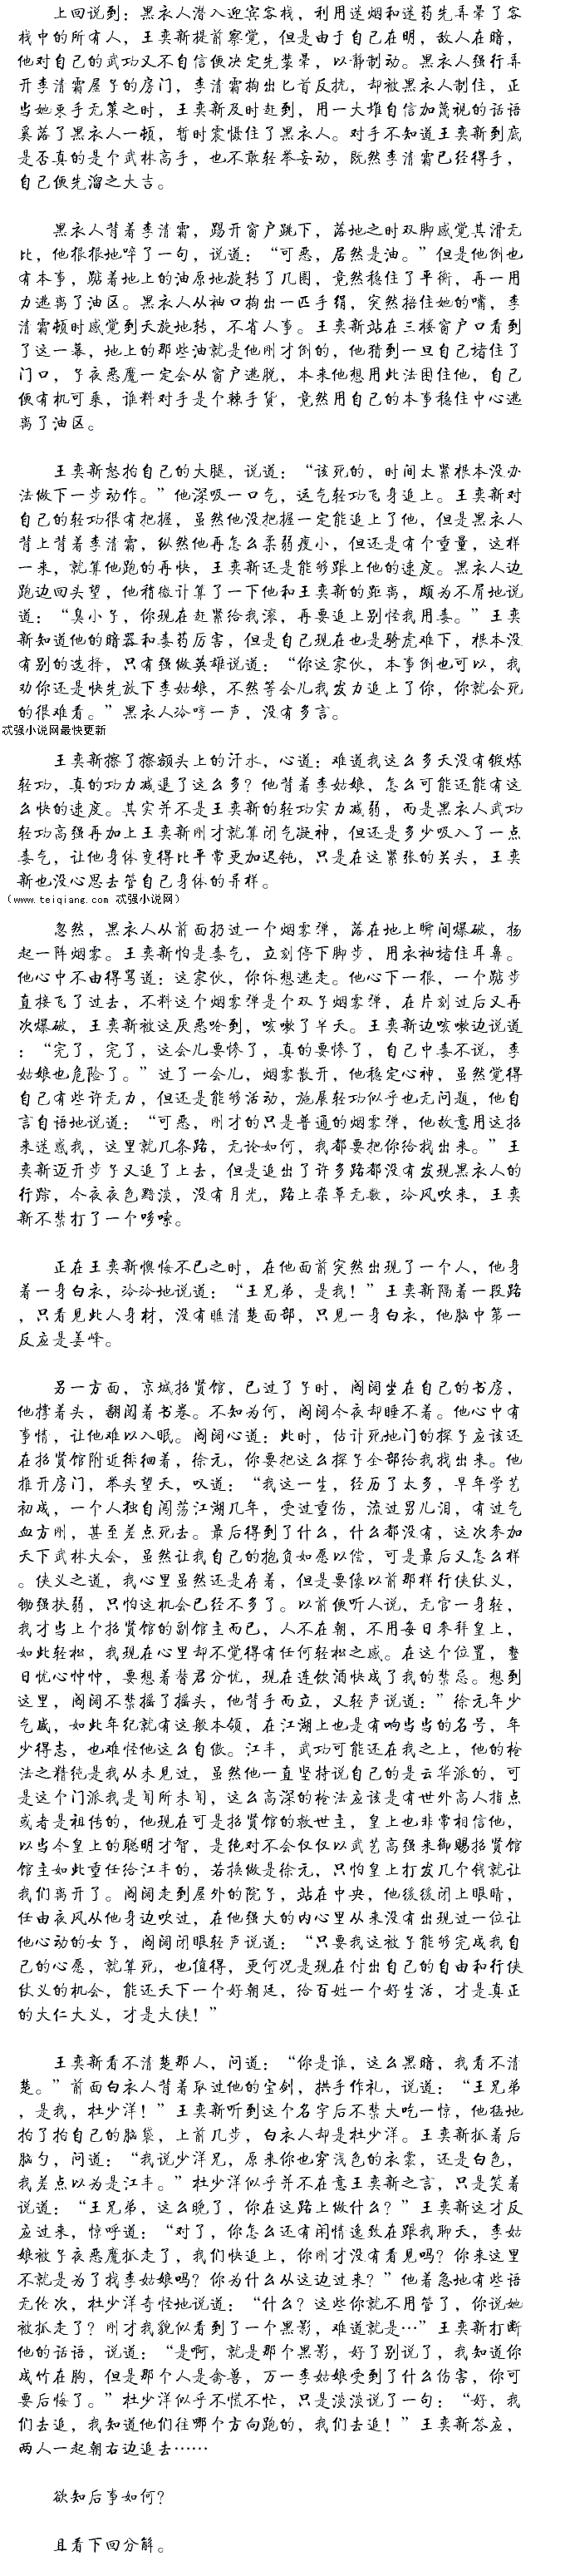 上回说到：黑衣人潜入迎宾客栈，利用迷烟和迷药先弄晕了客
栈中的所有人，王奕新提前察觉，但是由于自己在明，敌人在暗，
他对自己的武功又不自信便决定先装晕，以静制动。黑衣人强行弄
开李清霜屋子的房门，李清霜掏出匕首反抗，却被黑衣人制住，正
当她束手无策之时，王奕新及时赶到，用一大堆自信加蔑视的话语
奚落了黑衣人一顿，暂时震慑住了黑衣人。对手不知道王奕新到底
是否真的是个武林高手，也不敢轻举妄动，既然李清霜已经得手，
自己便先溜之大吉。
黑衣人背着李清霜，踢开窗户跳下，落地之时双脚感觉其滑无
比，他狠狠地啐了一句，说道：“可恶，居然是油。”但是他倒也
有本事，踮着地上的油原地旋转了几圈，竟然稳住了平衡，再一用
力逃离了油区。黑衣人从袖口掏出一匹手绢，突然捂住她的嘴，李
清霜顿时感觉到天旋地转，不省人事。王奕新站在三楼窗户口看到
了这一幕，地上的那些油就是他刚才倒的，他猜到一旦自己堵住了
门口，子夜恶魔一定会从窗户逃脱，本来他想用此法困住他，自己
便有机可乘，谁料对手是个棘手货，竟然用自己的本事稳住中心逃
离了油区。
王奕新怒拍自己的大腿，说道：“该死的，时间太紧根本没办
法做下一步动作。”他深吸一口气，运气轻功飞身追上。王奕新对
自己的轻功很有把握，虽然他没把握一定能追上了他，但是黑衣人
背上背着李清霜，纵然他再怎么柔弱瘦小，但还是有个重量，这样
一来，就算他跑的再快，王奕新还是能够跟上他的速度。黑衣人边
跑边回头望，他稍微计算了一下他和王奕新的距离，颇为不屑地说
道：“臭小子，你现在赶紧给我滚，再要追上别怪我用毒。”王奕
新知道他的暗器和毒药厉害，但是自己现在也是骑虎难下，根本没
有别的选择，只有强做英雄说道：“你这家伙，本事倒也可以，我
劝你还是快先放下李姑娘，不然等会儿我发力追上了你，你就会死
的很难看。”黑衣人冷哼一声，没有多言。
忒强小说网最快更新
王奕新擦了擦额头上的汗水，心道：难道我这么多天没有锻炼
轻功，真的功力减退了这么多？他背着李姑娘，怎么可能还能有这
么快的速度。其实并不是王奕新的轻功实力减弱，而是黑衣人武功
轻功高强再加上王奕新刚才就算闭气凝神，但还是多少吸入了一点
毒气，让他身体变得比平常更加迟钝，只是在这紧张的关头，王奕
新也没心思去管自己身体的异样。
（www.teiqiang.com 忒强小说网）
忽然，黑衣人从前面扔过一个烟雾弹，落在地上瞬间爆破，扬
起一阵烟雾。王奕新怕是毒气，立刻停下脚步，用衣袖堵住耳鼻。
他心中不由得骂道：这家伙，你休想逃走。他心下一狠，一个踮步
直接飞了过去，不料这个烟雾弹是个双子烟雾弹，在片刻过后又再
次爆破，王奕新被这厌恶呛到，咳嗽了半天。王奕新边咳嗽边说道
：“完了，完了，这会儿要惨了，真的要惨了，自己中毒不说，李
姑娘也危险了。”过了一会儿，烟雾散开，他稳定心神，虽然觉得
自己有些许无力，但还是能够活动，施展轻功似乎也无问题，他自
言自语地说道：“可恶，刚才的只是普通的烟雾弹，他故意用这招
来迷惑我，这里就几条路，无论如何，我都要把你给找出来。”王
奕新迈开步子又追了上去，但是追出了许多路都没有发现黑衣人的
行踪，今夜夜色黯淡，没有月光，路上杂草无数，冷风吹来，王奕
新不禁打了一个哆嗦。
正在王奕新懊悔不已之时，在他面前突然出现了一个人，他身
着一身白衣，冷冷地说道：“王兄弟，是我！”王奕新隔着一段路
，只看见此人身材，没有瞧清楚面部，只见一身白衣，他脑中第一
反应是姜峰。
另一方面，京城招贤馆，已过了子时，阎阔坐在自己的书房，
他撑着头，翻阅着书卷。不知为何，阎阔今夜却睡不着。他心中有
事情，让他难以入眠。阎阔心道：此时，估计死地门的探子应该还
在招贤馆附近徘徊着，徐元，你要把这么探子全部给我找出来。他
推开房门，举头望天，叹道：“我这一生，经历了太多，早年学艺
初成，一个人独自闯荡江湖几年，受过重伤，流过男儿泪，有过气
血方刚，甚至差点死去。最后得到了什么，什么都没有，这次参加
天下武林大会，虽然让我自己的抱负如愿以偿，可是最后又怎么样
。侠义之道，我心里虽然还是存着，但是要像以前那样行侠仗义，
锄强扶弱，只怕这机会已经不多了。以前便听人说，无官一身轻，
我才当上个招贤馆的副馆主而已，人不在朝，不用每日参拜皇上，
如此轻松，我现在心里却不觉得有任何轻松之感。在这个位置，整
日忧心忡忡，要想着替君分忧，现在连饮酒快成了我的禁忌。想到
这里，阎阔不禁摇了摇头，他背手而立，又轻声说道：”徐元年少
气盛，如此年纪就有这般本领，在江湖上也是有响当当的名号，年
少得志，也难怪他这么自傲。江丰，武功可能还在我之上，他的枪
法之精纯是我从未见过，虽然他一直坚持说自己的是云华派的，可
是这个门派我是闻所未闻，这么高深的枪法应该是有世外高人指点
或者是祖传的，他现在可是招贤馆的救世主，皇上也非常相信他，
以当今皇上的聪明才智，是绝对不会仅仅以武艺高强来御赐招贤馆
馆主如此重任给江丰的，若换做是徐元，只怕皇上打发几个钱就让
我们离开了。阎阔走到屋外的院子，站在中央，他缓缓闭上眼睛，
任由夜风从他身边吹过，在他强大的内心里从来没有出现过一位让
他心动的女子，阎阔闭眼轻声说道：“只要我这辈子能够完成我自
己的心愿，就算死，也值得，更何况是现在付出自己的自由和行侠
仗义的机会，能还天下一个好朝廷，给百姓一个好生活，才是真正
的大仁大义，才是大侠！”
王奕新看不清楚那人，问道：“你是谁，这么黑暗，我看不清
楚。”前面白衣人背着取过他的宝剑，拱手作礼，说道：“王兄弟
，是我，杜少洋！”王奕新听到这个名字后不禁大吃一惊，他猛地
拍了拍自己的脑袋，上前几步，白衣人却是杜少洋。王奕新抓着后
脑勺，问道：“我说少洋兄，原来你也穿浅色的衣裳，还是白色，
我差点以为是江丰。”杜少洋似乎并不在意王奕新之言，只是笑着
说道：“王兄弟，这么晚了，你在这路上做什么？”王奕新这才反
应过来，惊呼道：“对了，你怎么还有闲情逸致在跟我聊天，李姑
娘被子夜恶魔抓走了，我们快追上，你刚才没有看见吗？你来这里
不就是为了找李姑娘吗？你为什么从这边过来？”他着急地有些语
无伦次，杜少洋奇怪地说道：“什么？这些你就不用管了，你说她
被抓走了？刚才我貌似看到了一个黑影，难道就是…”王奕新打断
他的话语，说道：“是啊，就是那个黑影，好了别说了，我知道你
成竹在胸，但是那个人是禽兽，万一李姑娘受到了什么伤害，你可
要后悔了。”杜少洋似乎不慌不忙，只是淡淡说了一句：“好，我
们去追，我知道他们往哪个方向跑的，我们去追！”王奕新答应，
两人一起朝右边追去……
欲知后事如何？
且看下回分解。